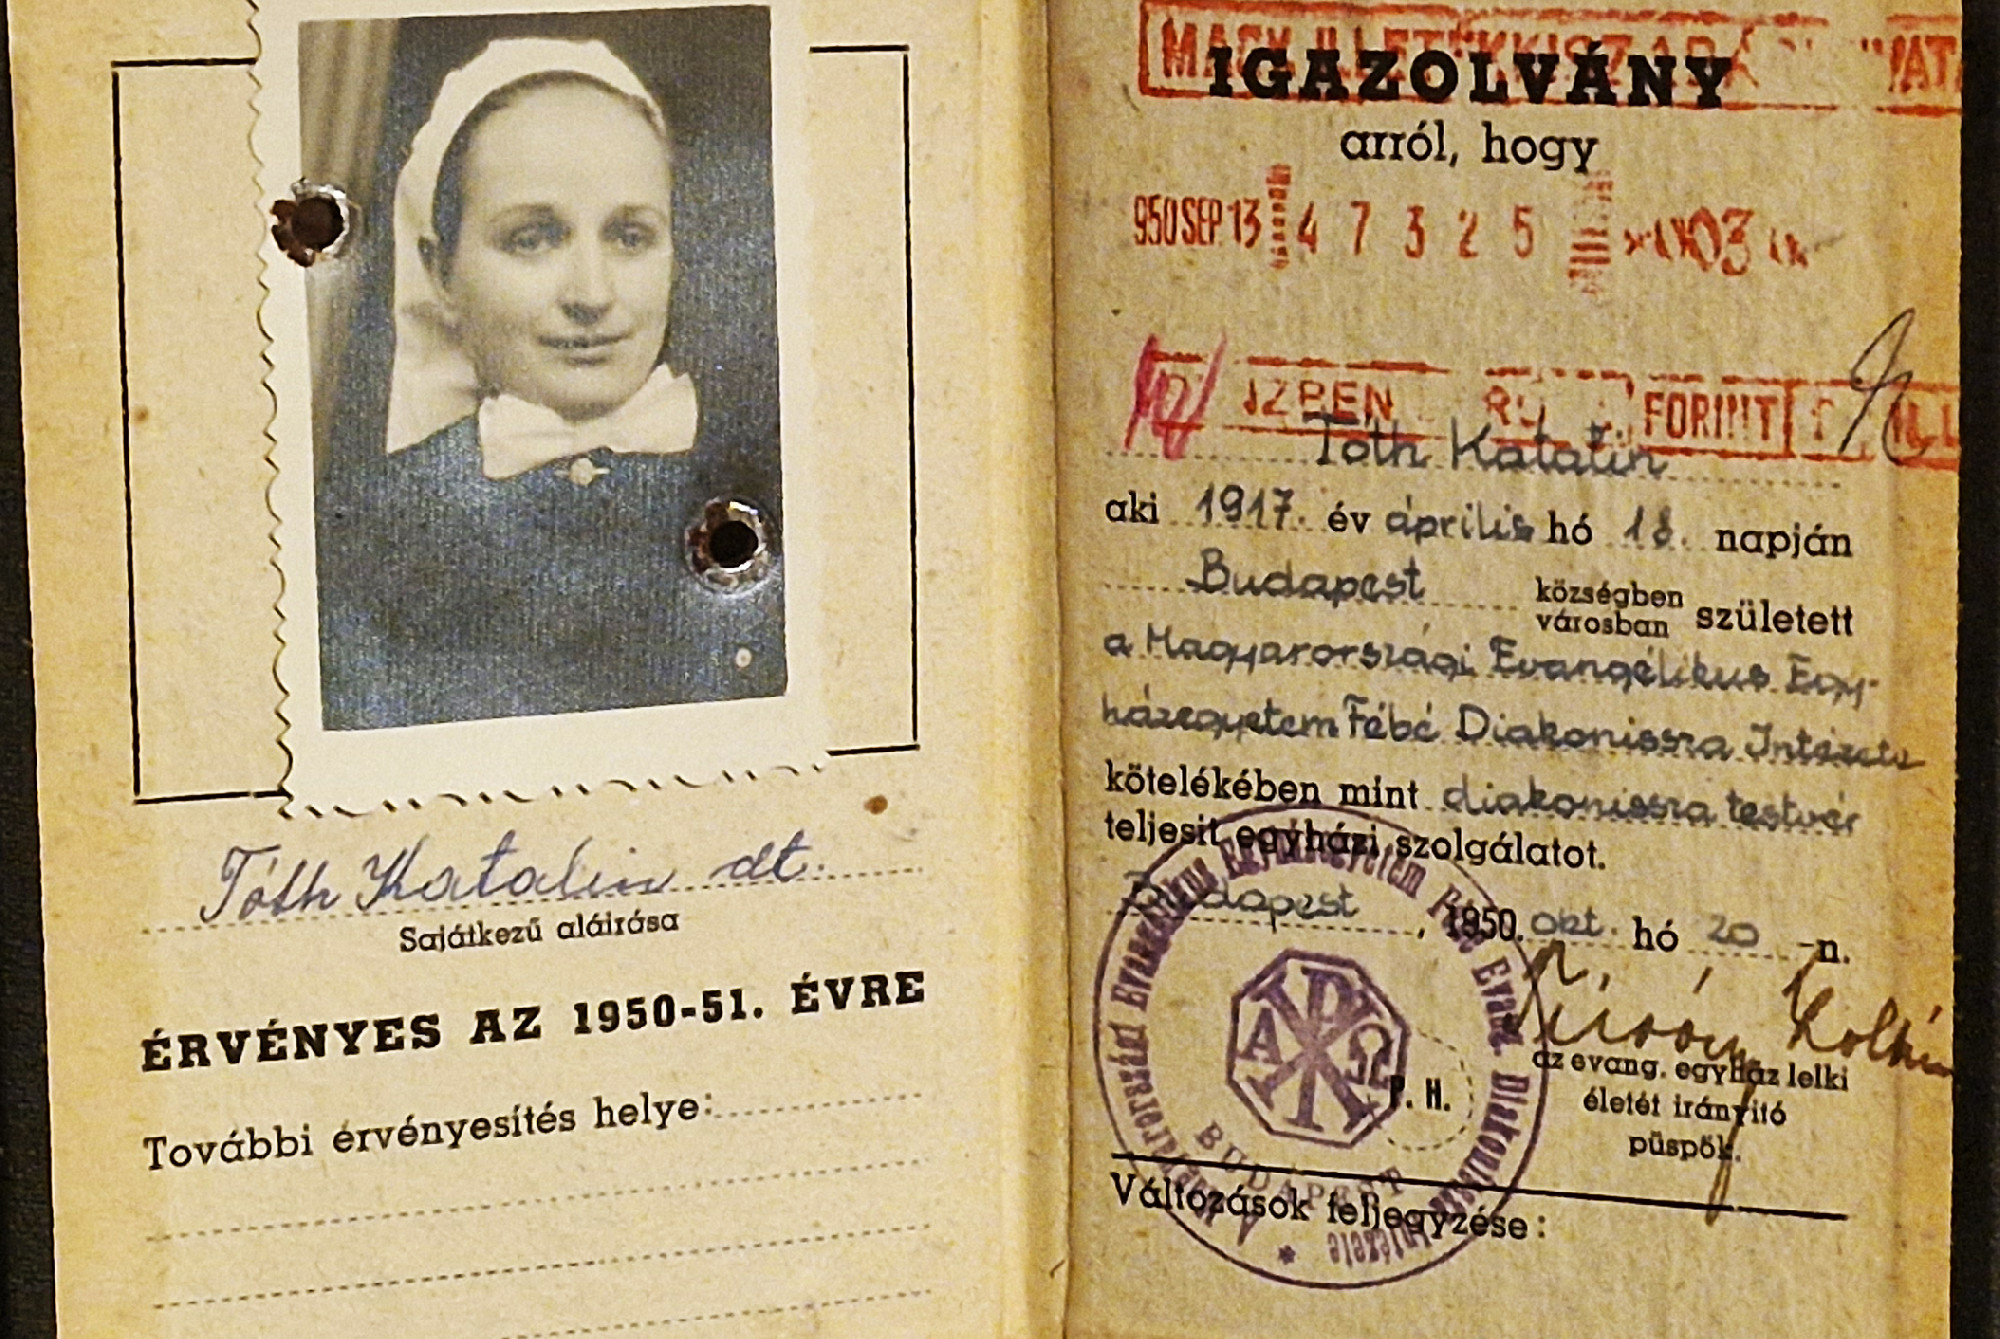 Tóth Katalin dt.
Sajátkezű aláirása
ÉRVÉNYES AZ 1950-51. ÉVRE
További érvényesítés helye:
IGAZOLVÁNY
arról, hogy
950 SEP 13 4 7 3 2 5
FORINT
Tóth Katalin
aki 1917. év április hó 18. napján
Budapest községben városban született
a Magyarországi Evangélikus Egy-
házegyetem Fébé Diakonissza Intézete
kötelékében mint diakonissza testvér
teljesit egyházi szolgálatot.
Budapest, 1950. okt. hó 20 -n.
az evang. egyház lelki
életét irányító
püspök.
P. H.
A Magyarországi Evangélikus Egyházegyetem Fébé Evang. Diakonissza Intézete
BUDAPEST
Α Ω
Változások feljegyzése: